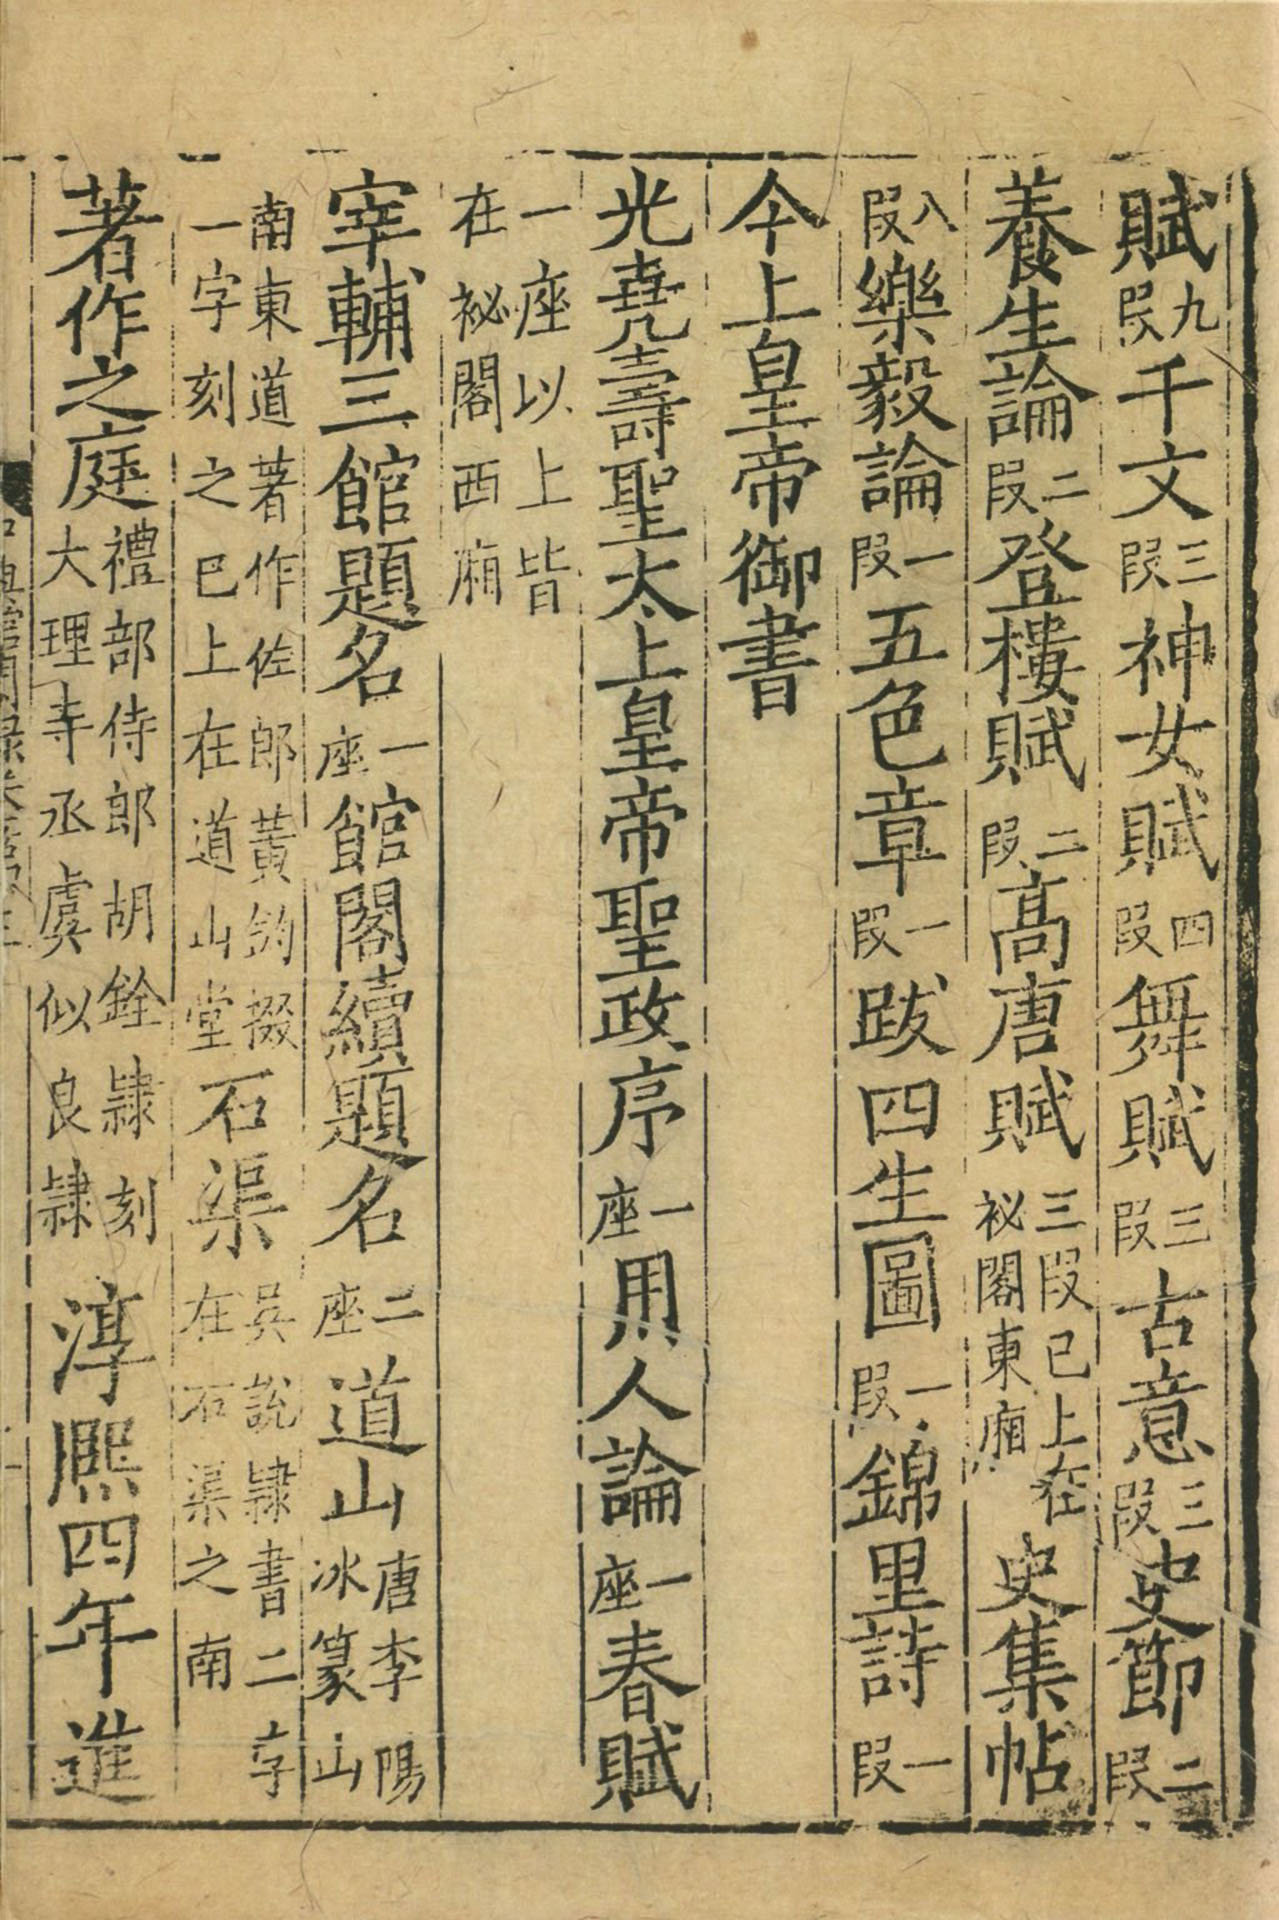 賦九段千文三段神女賦四段舞賦三段古意三段史節二段
養生論二段登樓賦二段高唐賦三段已上在祕閣東廂史集帖
八段樂毅論一段五色章一段跋四生圖一段錦里詩一段
今上皇帝御書
光堯壽聖太上皇帝聖政序一座用人論一座春賦
一座以上皆在祕閣西廂
宰輔三館題名一座館閣續題名二座道山唐李陽冰篆山
南東道著作佐郎黃鈞掇一字刻之巳上在道山堂石渠吳說隷書二字在石渠之南
著作之庭禮部侍郎胡銓隷刻大理寺丞虞似良隷淳熈四年進